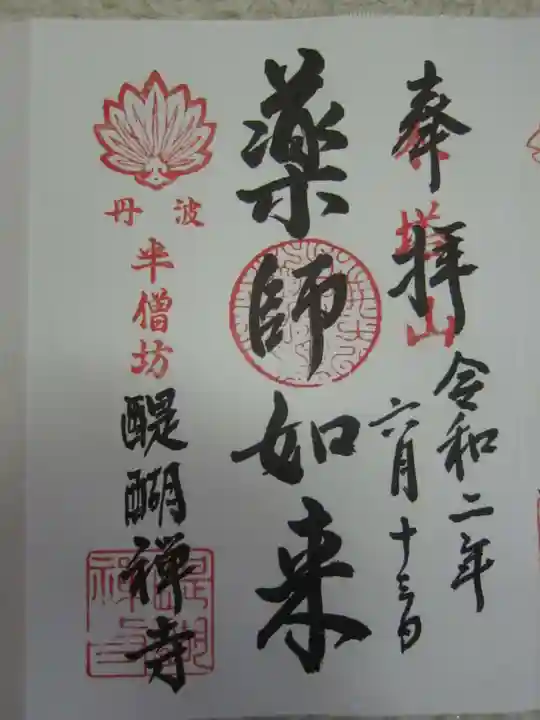 奉拝
塔山
令和二年
六月十三日
薬師如来
丹波
半僧坊
醍醐禅寺